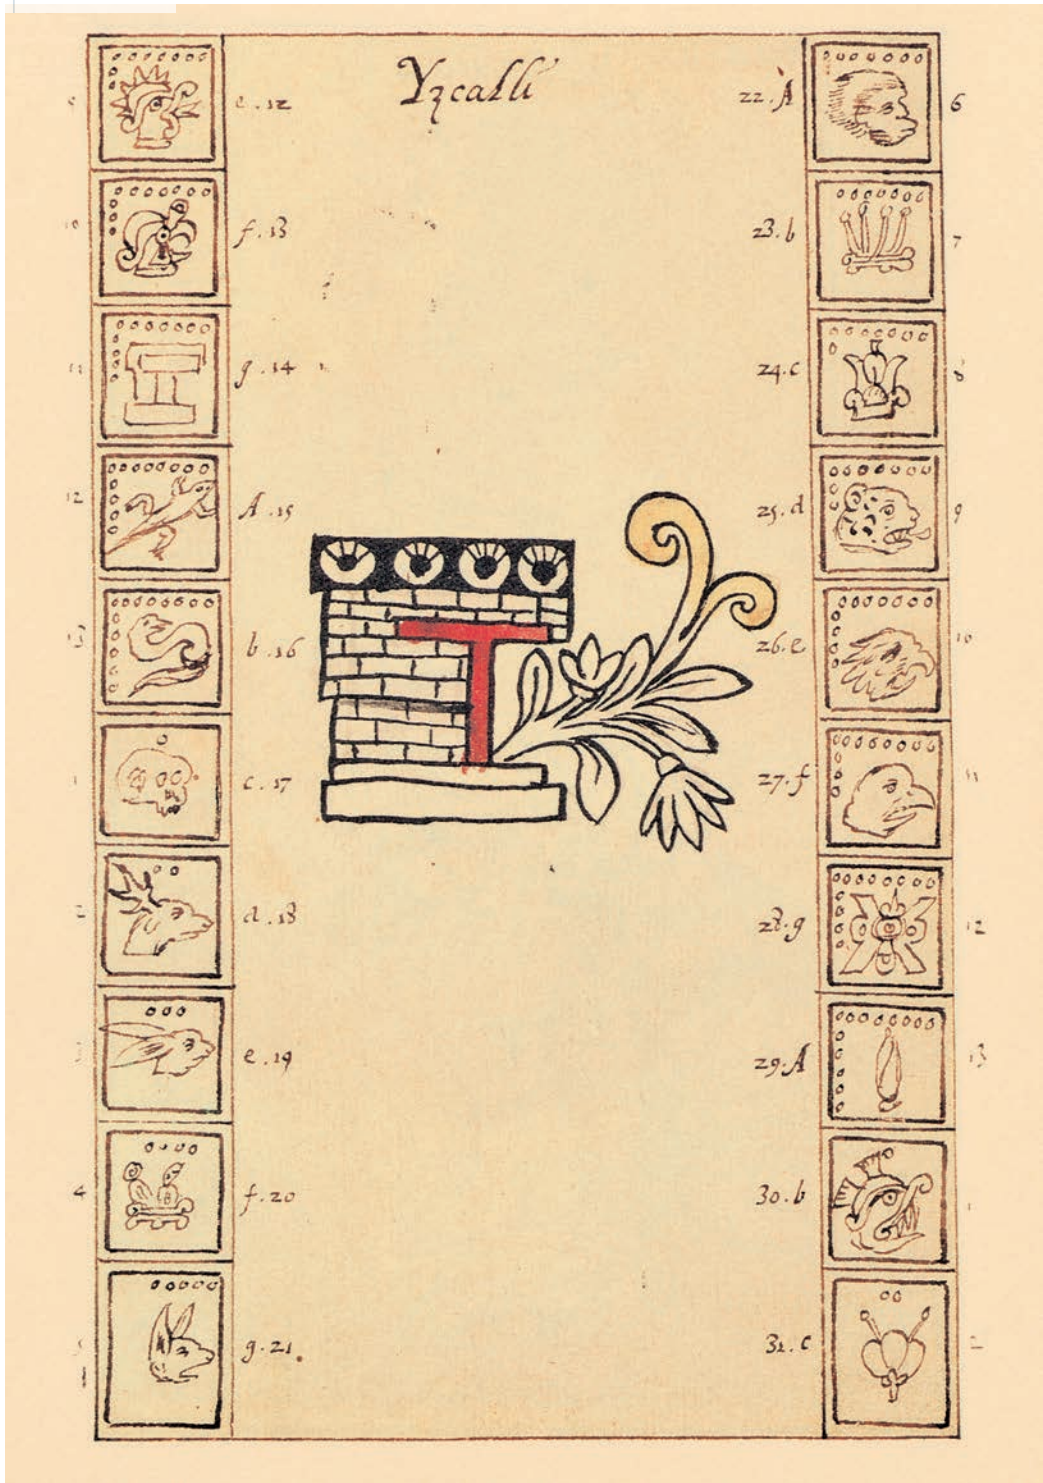 Yzcalli
9 e.12
10 f.13
11 g.14
12 A.15
13 b.16
1 c.17
2 d.18
3 e.19
4 f.20
5 g.21.
22.A 6
23.b 7
24.c 8
25.d 9
26.e 10
27.f 11
28.g 12
29.A 13
30.b 1
31.c 2